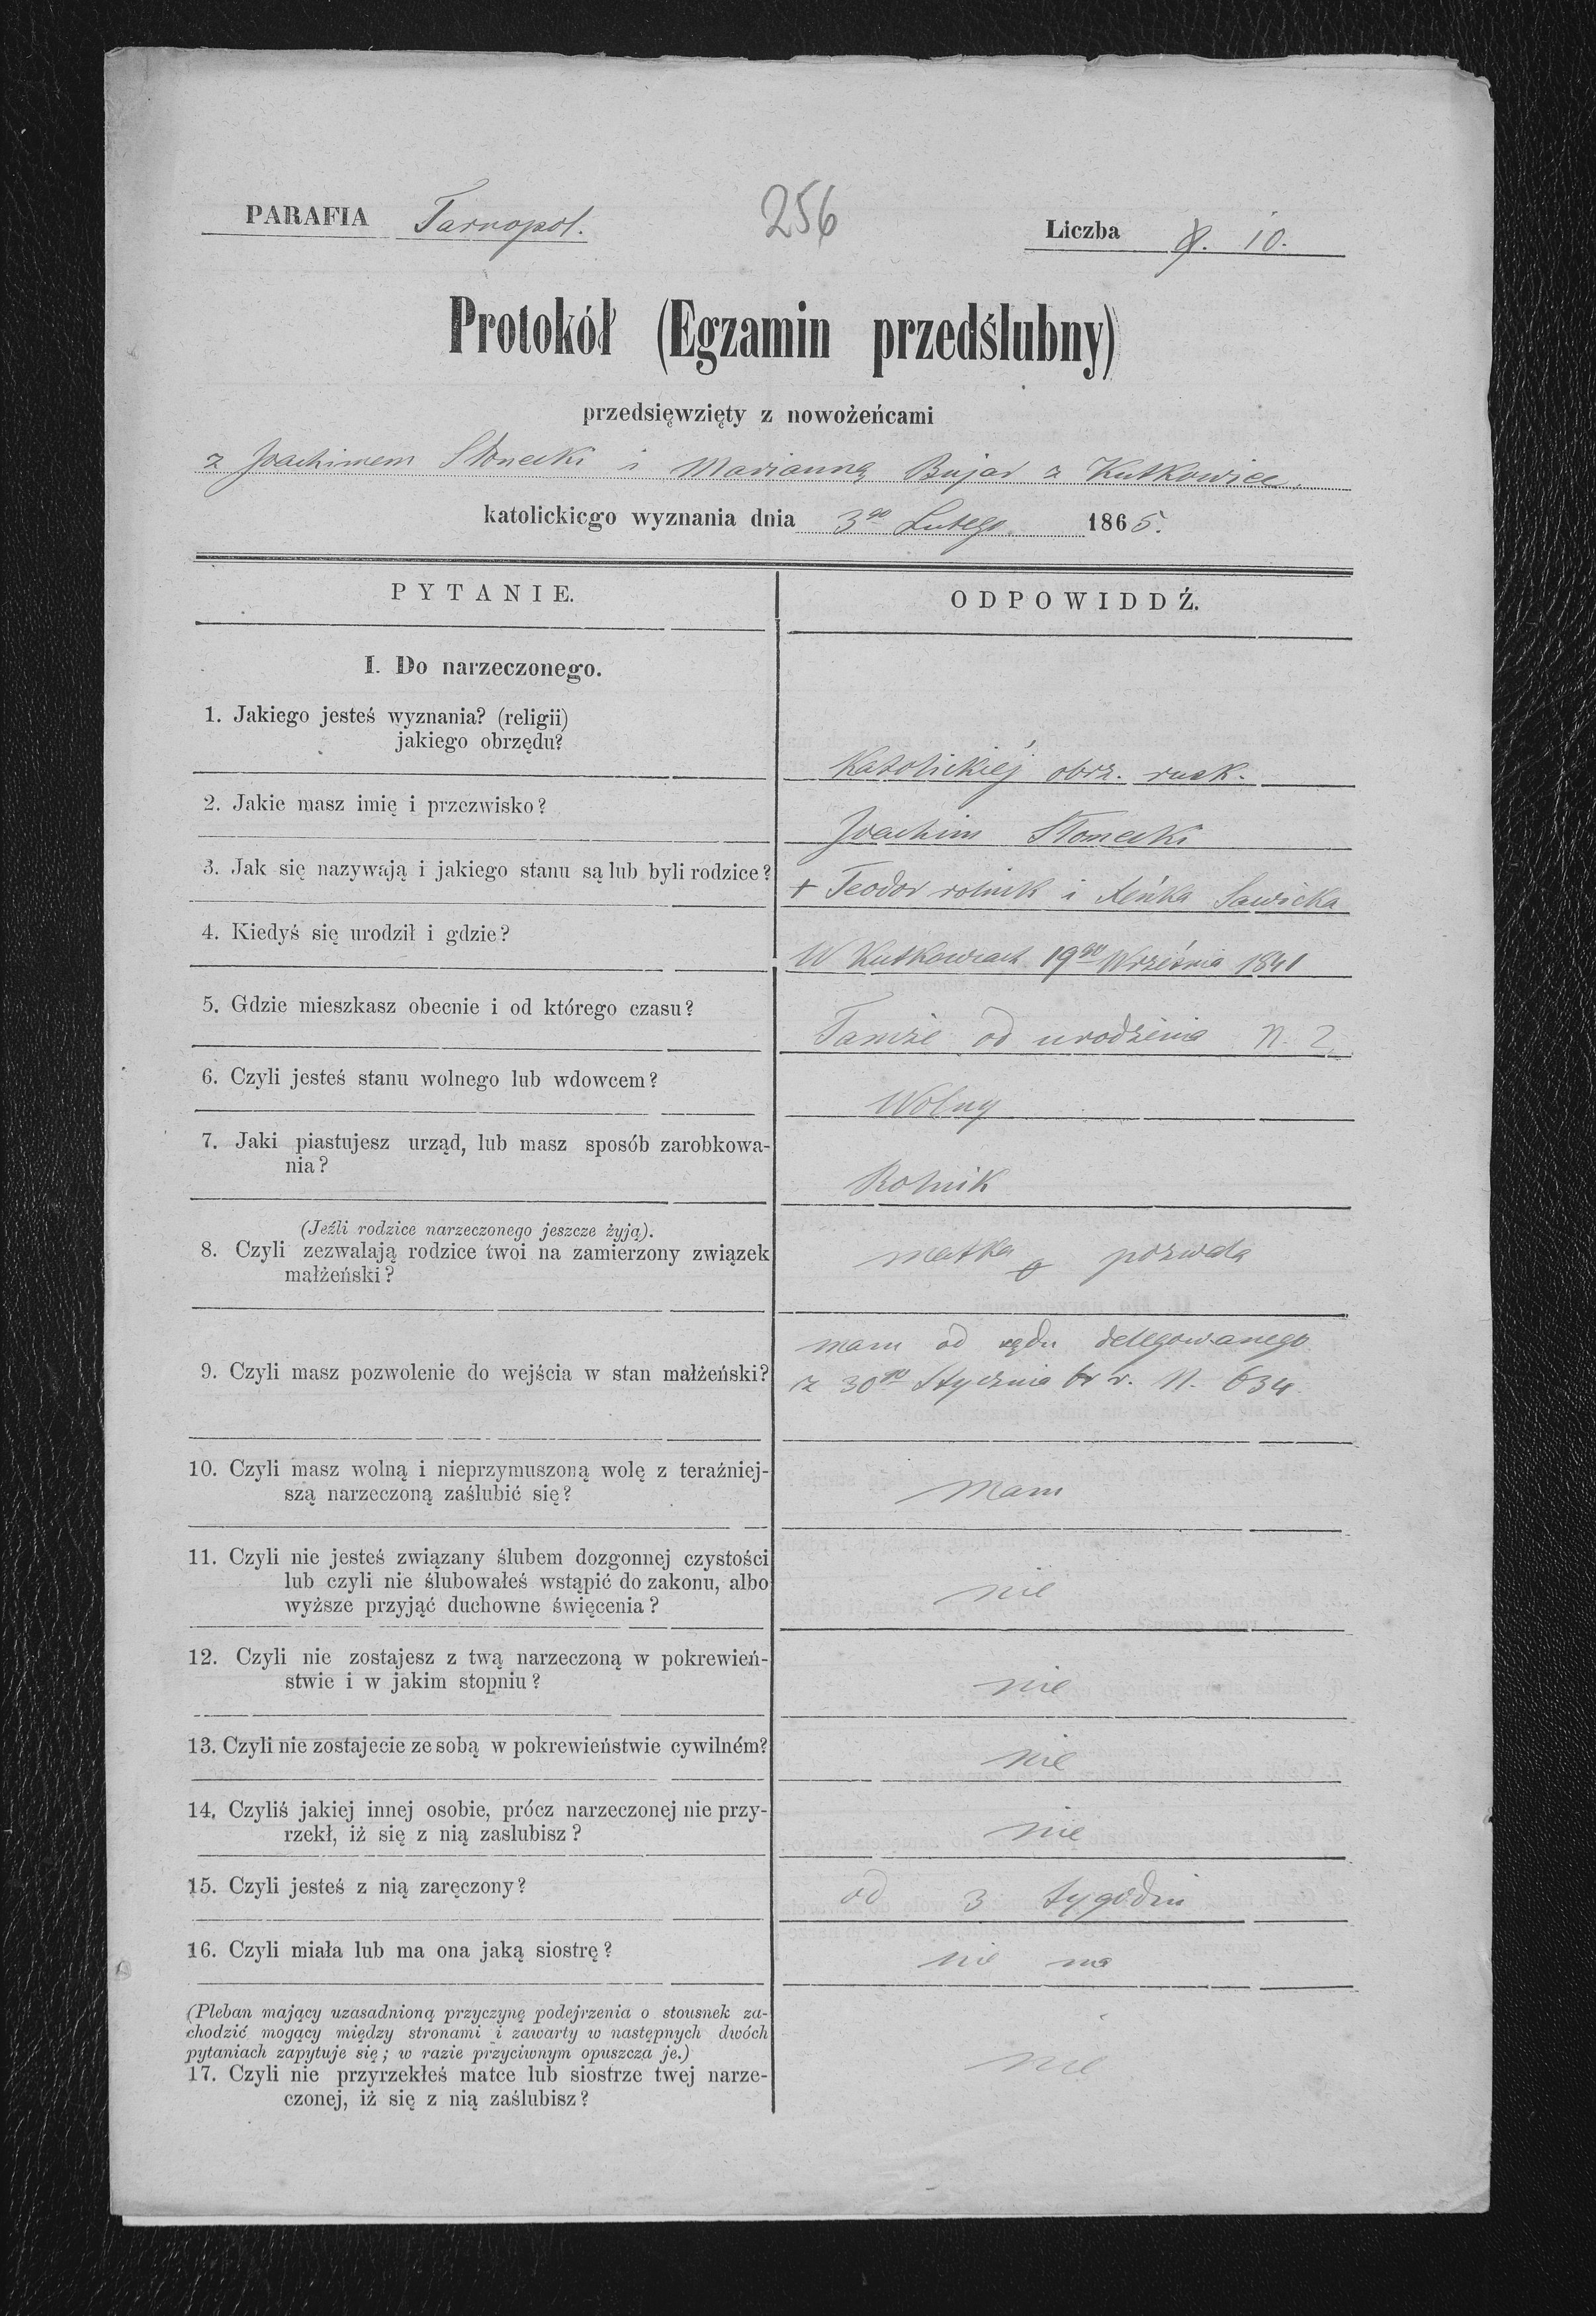 PARAFIA Tarnopol.
256
Liczba 10.
Protokół (Egzamin przedślubny)
przedsięwzięty z nowożeńcami
z Joachimem Słonecki i Marianną Bujar z Kutkowiec.
katolickiego wyznania dnia 3go Lutego 1865.
PYTANIE.
ODPOWIDDŹ.
I. Do narzeczonego.
1. Jakiego jesteś wyznania? (religii)
jakiego obrzędu?
Katolickiéj obrz. rusk.
2. Jakie masz imię i przezwisko?
Joachim Słonecki
3. Jak się nazywają i jakiego stanu są lub byli rodzice?
+ Teodor rolnik i Xeńka Sawicka
4. Kiedyś się urodził i gdzie?
W Kutkowcach 19go Września 1841
5. Gdzie mieszkasz obecnie i od którego czasu?
Tamże od urodzenia N. 2.
6. Czyli jesteś stanu wolnego lub wdowcem?
Wolny
7. Jaki piastujesz urząd, lub masz sposób zarobkowa-
nia?
Rolnik
(Jeźli rodzice narzeczonego jeszcze żyją).
8. Czyli zezwalają rodzice twoi na zamierzony związek
małżeński?
matka pozwala
9. Czyli masz pozwolenie do wejścia w stan małżeński?
mam od sędu delegowanego
z 30go Stycznia b r. N. 634.
10. Czyli masz wolną i nieprzymuszoną wolę z teraźniej-
szą narzeczoną zaślubić się?
Mam
11. Czyli nie jesteś związany ślubem dozgonnej czystości
lub czyli nie ślubowałeś wstąpić do zakonu, albo
wyższe przyjąć duchowne święcenia?
nie
12. Czyli nie zostajesz z twą narzeczoną w pokrewień-
stwie i w jakim stopniu?
nie
13. Czyli nie zostajecie ze sobą w pokrewieństwie cywilném?
nie
14. Czyliś jakiej innej osobie, prócz narzeczonej nie przy-
rzekł, iż się z nią zaslubisz?
nie
15. Czyli jesteś z nią zaręczony?
od 3 tygodni
16. Czyli miała lub ma ona jaką siostrę?
nie ma
(Pleban mający uzasadnioną przyczynę podejrzenia o stousnek za-
chodzić mogący między stronami i zawarty w następnych dwóch
pytaniach zapytuje się; w razie przyciwnym opuszcza je.)
17. Czyli nie przyrzekłeś matce lub siostrze twej narze-
czonej, iż się z nią zaślubisz?
nie